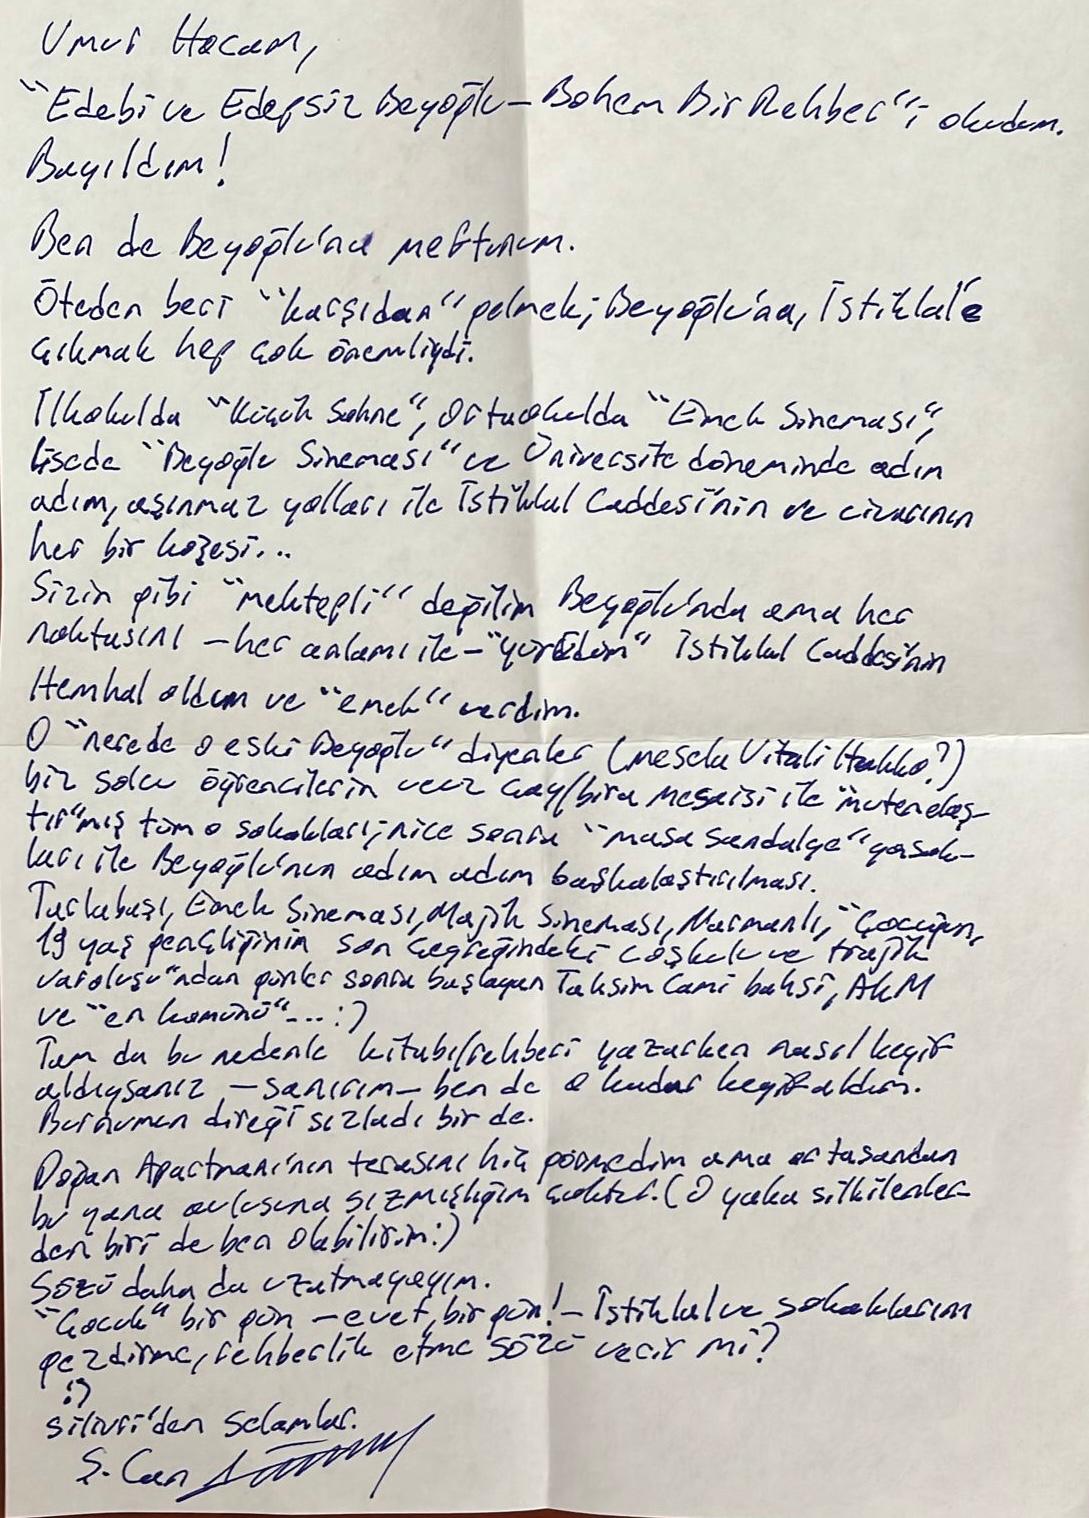 Umur Hocam,
“Edebi ve Edepsiz Beyoğlu – Bohem Bir Rehber”i okudum.
Bayıldım!
Ben de Beyoğlu'na meftunum.
Öteden beri “karşıdan” gelmek; Beyoğlu'na, İstiklal'e
çıkmak hep çok önemliydi.
İlkokulda “Küçük Sahne”, Ortaokulda “Emek Sineması”,
lisede “Beyoğlu Sineması” ve Üniversite döneminde adım
adım, aşınmaz yolları ile İstiklal Caddesi'nin ve civarının
her bir köşesi...
Sizin gibi “mektepli” değilim Beyoğlu'nda ama her
noktasını – her anlamı ile – “yürüdüm” İstiklal Caddesi'nin
Hemhal oldum ve “emek” verdim.
O “nerede o eski Beyoğlu” diyenler (mesela Vitali Hakko?)
biz solcu öğrencilerin ucuz çay/bira mesaisi ile “mutenalaş-
tır”mış tüm o sokakları; nice sonra “masa sandalye” yasak-
ları ile Beyoğlu'nun adım adım başkalaştırılması.
Tarlabaşı, Emek Sineması, Majik Sineması, Narmanlı, “Çocuğun,
19 yaş gençliğinin son çeyreğindeki coşkulu ve trajik
varoluşu”ndan günler sonra başlayan Taksim Cami bahsi, AKM
ve “en komünü”... :)
Tam da bu nedenle kitabı/rehberi yazarken nasıl keyif
aldıysanız – sanırım – ben de o kadar keyif aldım.
Burnumun direği sızladı bir de.
Doğan Apartmanı'nın terasını hiç görmedim ama ortasından
bu yana avlusuna sızmışlığım çoktur. (O yaka silkilenler-
den biri de ben olabilirim:)
Sözü daha da uzatmayayım.
“Çocuk” bir gün – evet, bir gün! – İstiklal ve sokaklarını
gezdirme, rehberlik etme sözü verir mi?
:)
Silivri'den Selamlar.
Ş. Can